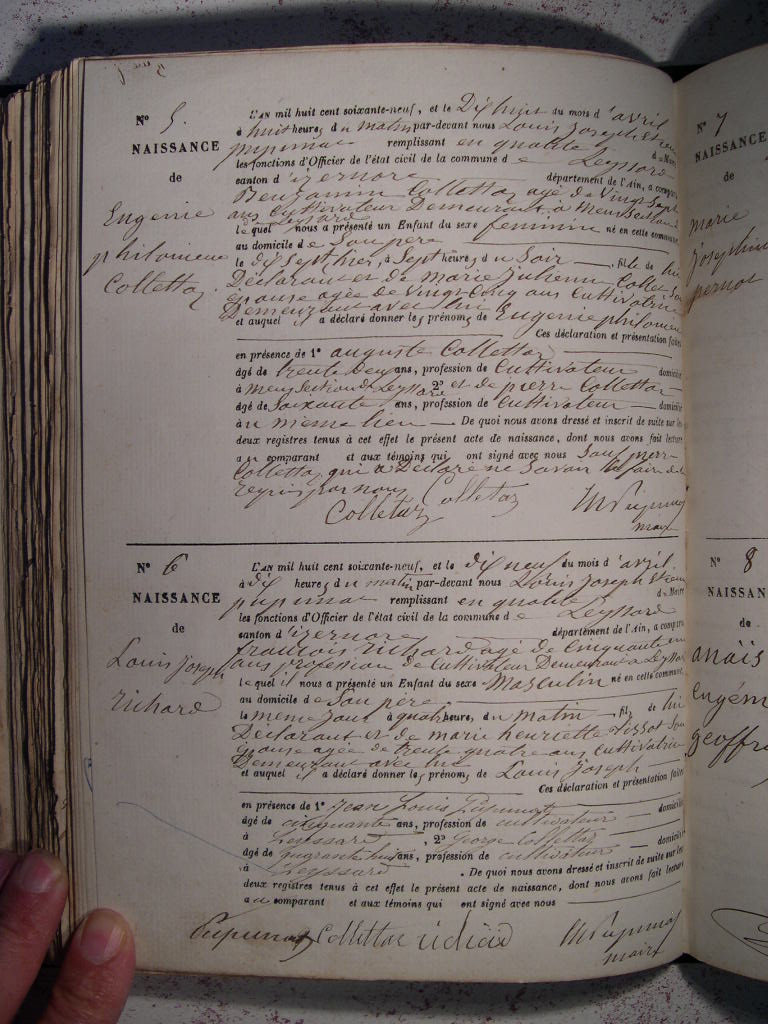 N° 5.
NAISSANCE
de
Eugenie
philomene
Collettaz
L'AN mil huit cent soixante-neuf, et le Dix huit du mois d'avril
à huit heures du matin par-devant nous Louis Joseph
pupunat remplissant en qualité de Maire
les fonctions d'Officier de l'état civil de la commune de Leyssard
canton d'izernore département de l'Ain, a comparu
Benjamin Collettaz agé de Vingt Sept
ans Cultivateur Demeurant à
lequel nous a présenté un Enfant du sexe feminin né en cette commune
au domicile de Son père
le dix Sept hier, à Sept heures du Soir fille de lui
Déclarant et de marie julienne
épouse agée de Vingt Cinq ans Cultivatrice
Demeurant avec lui
et auquel il a déclaré donner les prénoms de Eugenie philomene
Ces déclaration et présentation faites
en présence de 1° auguste Collettaz
âgé de trente Deux ans, profession de Cultivateur domicilié
à Leyssard 2° et de pierre Collettaz
âgé de Soixante ans, profession de Cultivateur domicilié
au meme lieu De quoi nous avons dressé et inscrit de suite sur les
deux registres tenus à cet effet le présent acte de naissance, dont nous avons fait lecture
au comparant et aux témoins qui ont signé avec nous Sauf pierre
Collettaz qui a Déclaré ne Savoir le faire de ce
requis par nous Colletaz
Colletaz pupunat
maire
N° 6
NAISSANCE
de
Louis Joseph
richard
L'AN mil huit cent soixante-neuf, et le dix neuf du mois d'avril
à dix heures du matin par-devant nous Louis Joseph
pupunat remplissant en qualité de Maire
les fonctions d'Officier de l'état civil de la commune de Leyssard
canton d'izernore département de l'Ain, a comparu
francois richard agé de Cinquante un
ans profession de Cultivateur Demeurant a Leyssard
lequel nous a présenté un Enfant du sexe Masculin né en cette commune
au domicile de Son père
le meme jour à quatre heures, du matin fils de lui
Déclarant et de marie henriette tissot Son
épouse agée de trente quatre ans Cultivatrice
Demeurant avec lui
et auquel il a déclaré donner les prénoms de Louis Joseph
Ces déclaration et présentation faites
en présence de 1° Jean Louis Pupunat domicilié
âgé de cinquante ans, profession de cultivateur
à Leyssard, 2° George Collettaz domicilié
âgé de quarante huit ans, profession de cultivateur
à Leyssard. De quoi nous avons dressé et inscrit de suite sur les
deux registres tenus à cet effet le présent acte de naissance, dont nous avons fait lecture
au comparant et aux témoins qui ont signé avec nous
Pupunat Collettaz richard pupunat
maire
N° 7
NAISSANCE
de
marie
josephine
pernot
N° 8
NAISSAN
de
anaïs
eugéni
geoffr